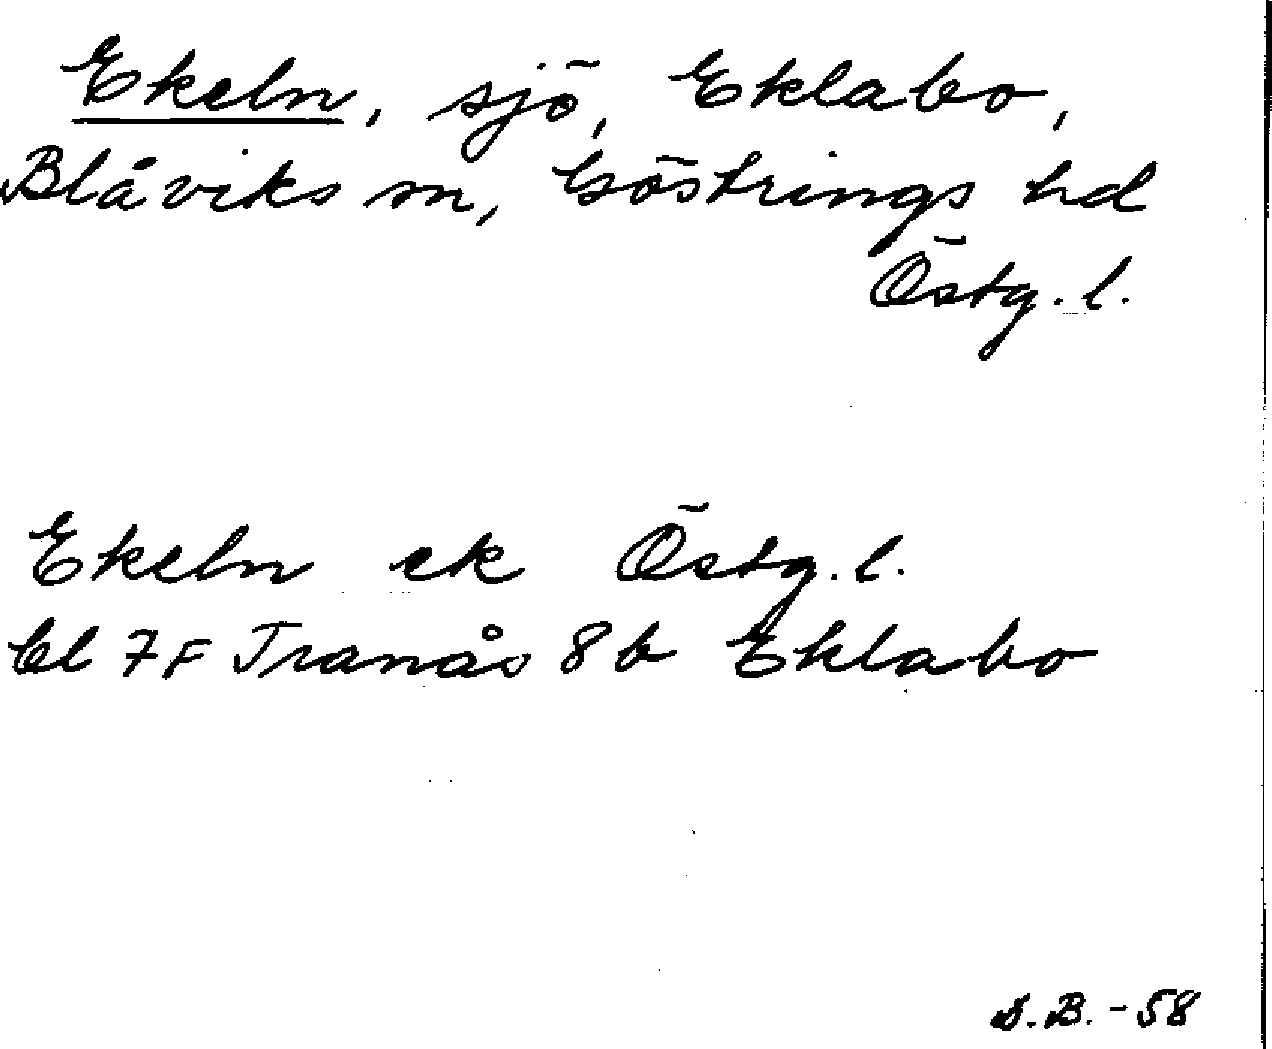 Ekeln, sjö, Eklabo,
Blåviks sn, Göstrings hd
Östg. l.
Ekeln ek Östg. l.
bl 7F Tranås 8b Eklabo
S.B. -58